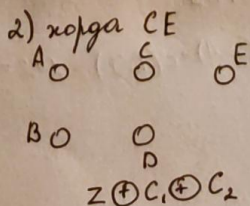 2) хорда CE
A C E
B D
Z ⊕ C₁ ⊕ C₂